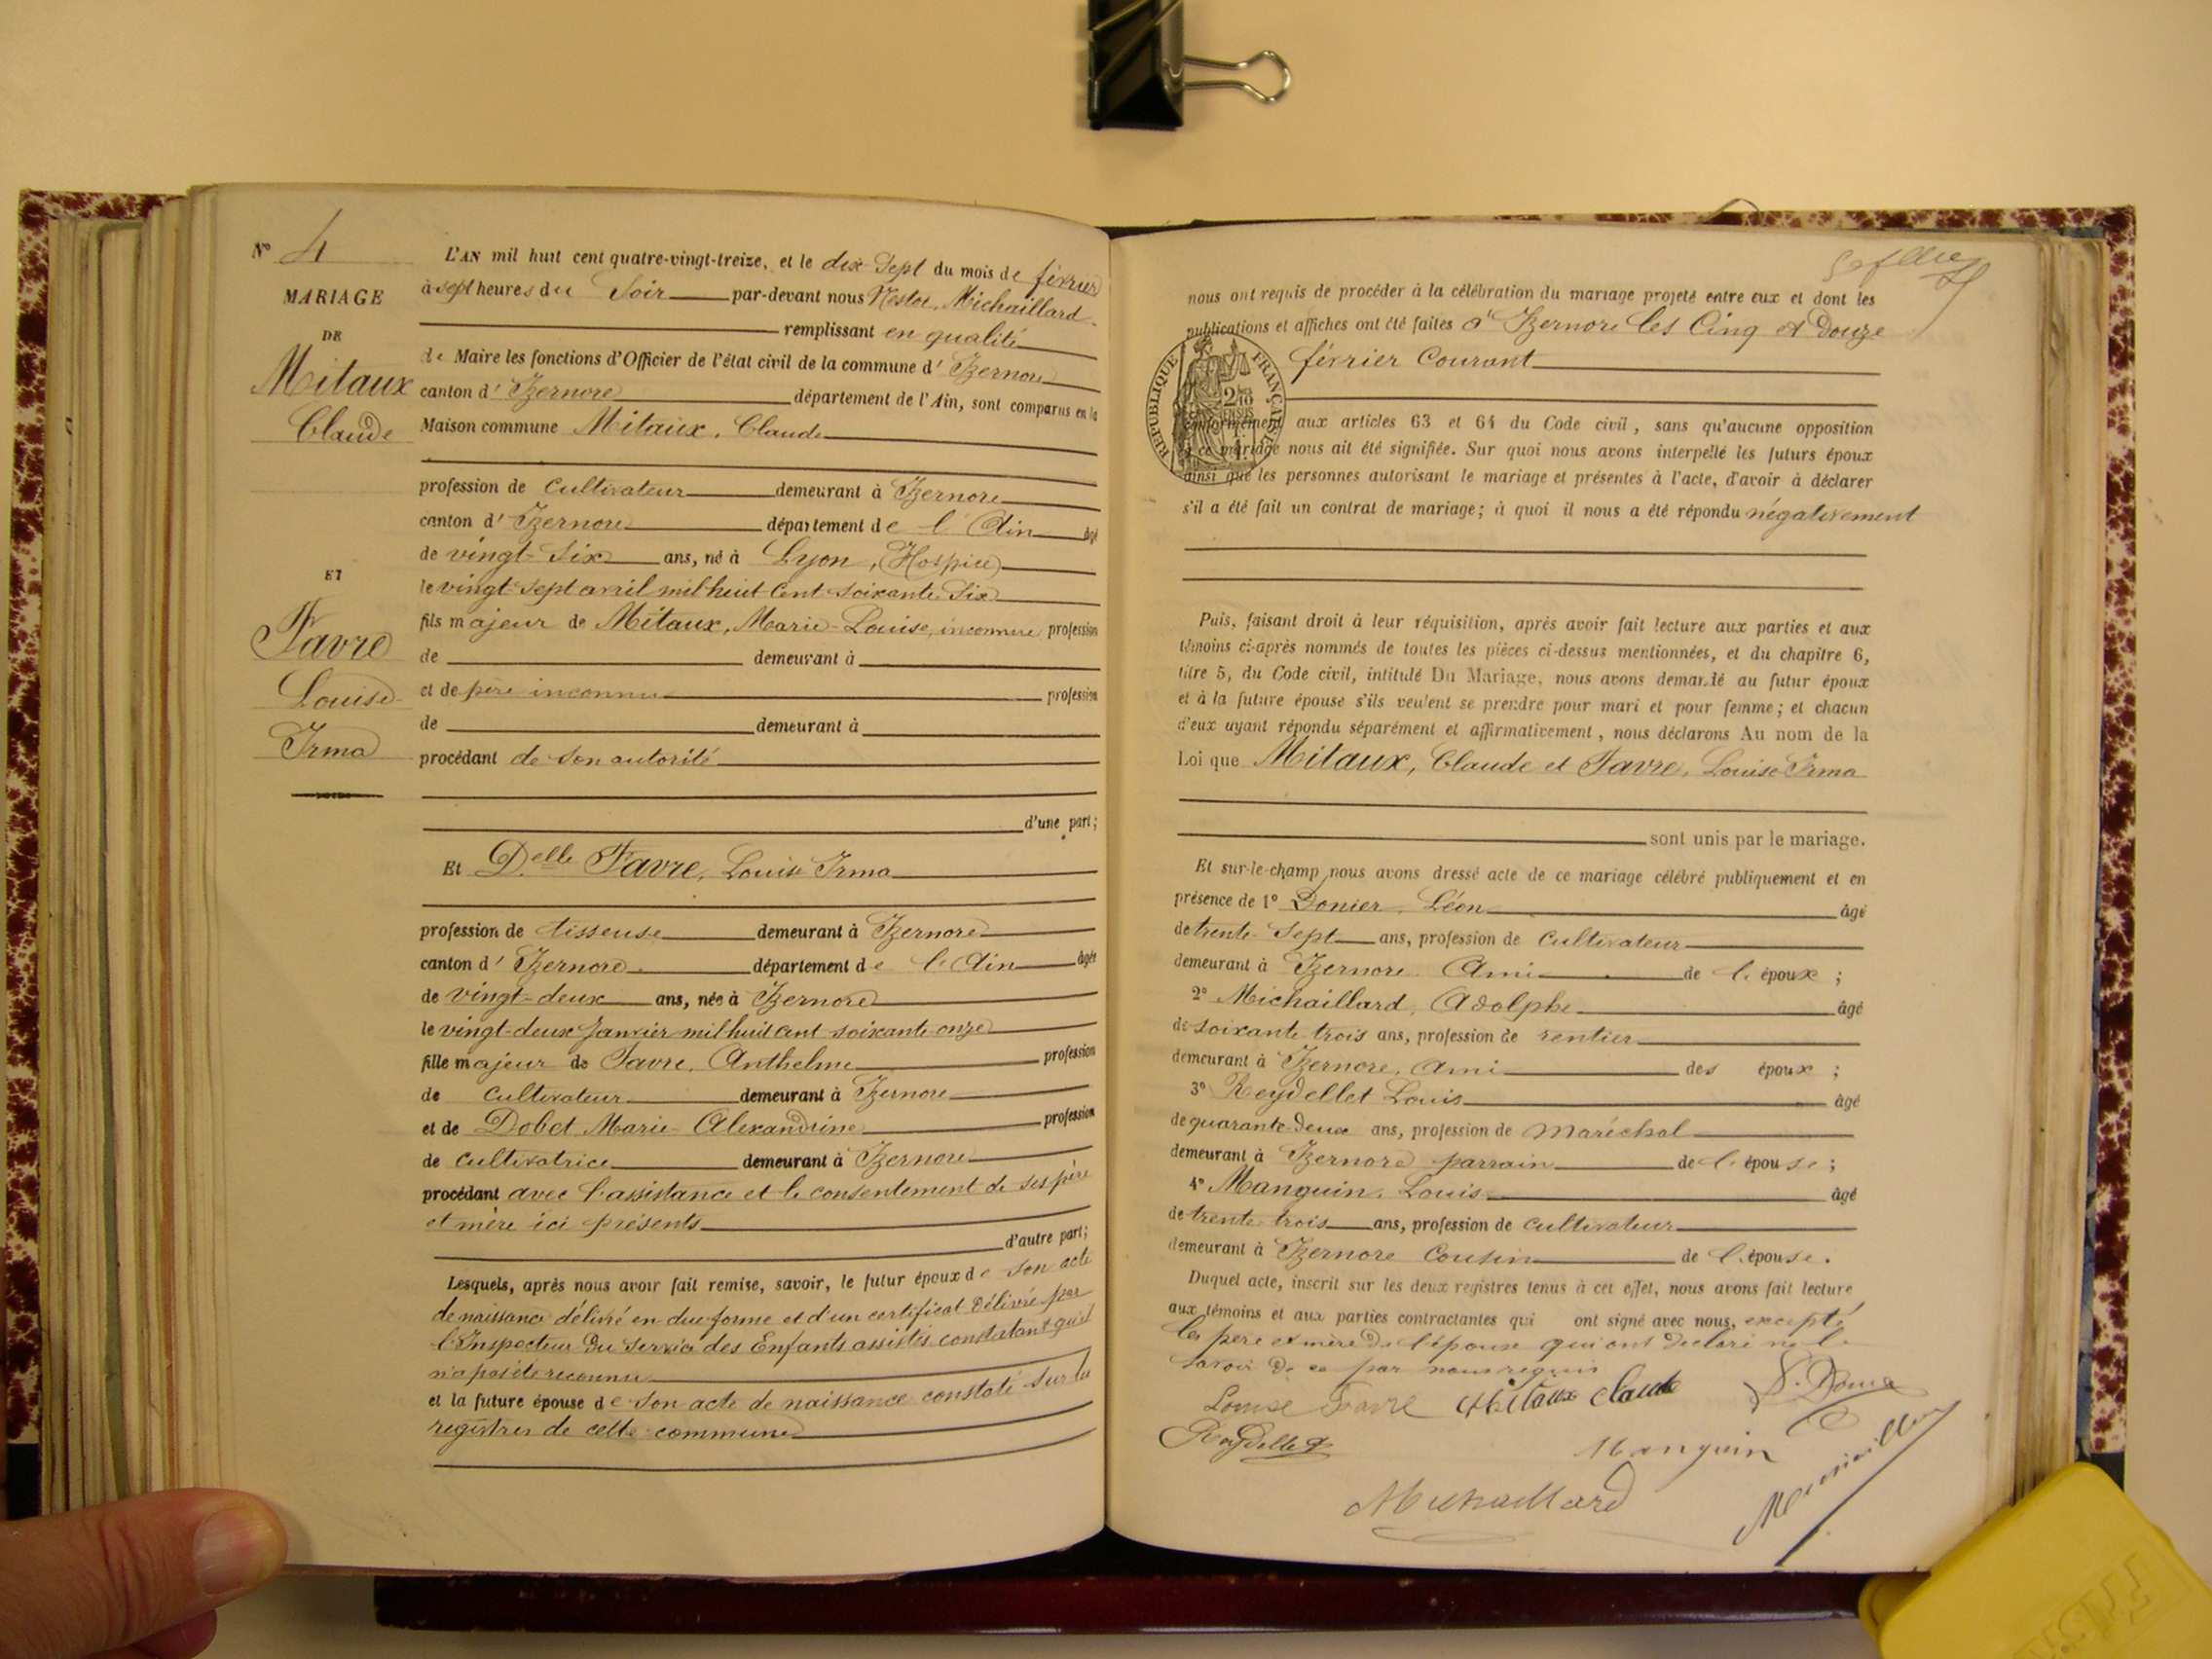 N° 4
MARIAGE
DE
Mitaux
Claude
ET
Favre
Louise
Irma
L'AN mil huit cent quatre-vingt-treize, et le dix-Sept du mois de février
à sept heures du Soir par-devant nous Nestor Michaillard
remplissant en qualité
de Maire les fonctions d'Officier de l'état civil de la commune d'Izernore
canton d'Izernore département de l'Ain, sont comparus en la
Maison commune Mitaux, Claude
profession de Cultivateur demeurant à Izernore
canton d'Izernore département de l'Ain âgé
de vingt-Six ans, né à Lyon, (Hospice)
le vingt-sept avril mil huit Cent soixante Six
fils majeur de Mitaux, Marie-Louise, inconnue profession
de demeurant à
et de père inconnu profession
de demeurant à
procédant de Son autorité
d'une part;
Et Delle Favre, Louise Irma
profession de tisseuse demeurant à Izernore
canton d'Izernore département de l'Ain âgée
de vingt-deux ans, née à Izernore
le vingt-deux Janvier mil huit cent soixante-onze
fille majeur de Favre, Anthelme profession
de Cultivateur demeurant à Izernore
et de Dobet Marie-Alexandrine profession
de Cultivatrice demeurant à Izernore
procédant avec l'assistance et le consentement de ses père
et mère ici présents
d'autre part;
Lesquels, après nous avoir fait remise, savoir, le futur époux de Son acte
de naissance délivré en due forme et d'un certificat Délivré par
l'Inspecteur Du Service des Enfants assistés constatant qu'il
n'a pas été reconnu
et la future épouse de Son acte de naissance constaté Sur les
registres de cette commune
nous ont requis de procéder à la célébration du mariage projeté entre eux et dont les
publications et affiches ont été faites à Izernore les Cinq et Douze
février Courant
RÉPUBLIQUE FRANÇAISE
conformément aux articles 63 et 64 du Code civil, sans qu'aucune opposition
à ce mariage nous ait été signifiée. Sur quoi nous avons interpellé les futurs époux
ainsi que les personnes autorisant le mariage et présentes à l'acte, d'avoir à déclarer
s'il a été fait un contrat de mariage; à quoi il nous a été répondu négativement
Puis, faisant droit à leur réquisition, après avoir fait lecture aux parties et aux
témoins ci-après nommés de toutes les pièces ci-dessus mentionnées, et du chapitre 6,
titre 5, du Code civil, intitulé Du Mariage, nous avons demandé au futur époux
et à la future épouse s'ils veulent se prendre pour mari et pour femme; et chacun
d'eux ayant répondu séparément et affirmativement, nous déclarons Au nom de la
Loi que Mitaux, Claude et Favre, Louise Irma
sont unis par le mariage.
Et sur-le-champ nous avons dressé acte de ce mariage célébré publiquement et en
présence de 1° Donier, Léon âgé
de trente-Sept ans, profession de Cultivateur
demeurant à Izernore Ami de l'époux;
2° Michaillard, Adolphe âgé
de soixante trois ans, profession de rentier
demeurant à Izernore, Ami des époux;
3° Reydellet Louis âgé
de quarante-Deux ans, profession de Maréchal
demeurant à Izernore parrain de l'épouse;
4° Manguin, Louis âgé
de trente trois ans, profession de Cultivateur
demeurant à Izernore Cousin de l'épouse.
Duquel acte, inscrit sur les deux registres tenus à cet effet, nous avons fait lecture
aux témoins et aux parties contractantes qui ont signé avec nous, excepté
les père et mère De l'épouse qui ont Declaré ne le
savoir De ce par nous requis
Louise Favre Mitaux Claude
Reydellet Manguin
Michaillard